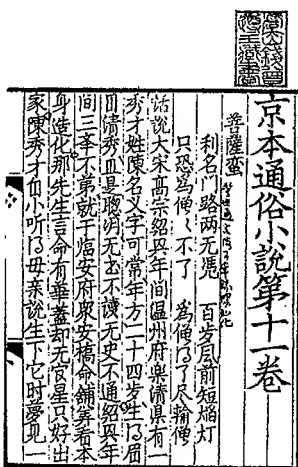 京本通俗小說第十一卷
菩薩蛮
利名門路兩无凴　百岁风前短焰灯
只恐為僧々不了　為僧得了尽輸僧
話說大宋高宗紹兴年间温州府樂清縣有一
秀才姓陳名义字可常年方二十四岁生得眉
目清秀且是聪明无书不讀无史不通紹兴年
间三举不第就于临安府眾安橋命舖筭看本
身造化那先生言命有華盖却无官星只好出
家陳秀才自小听得母亲說生下它时夢見一